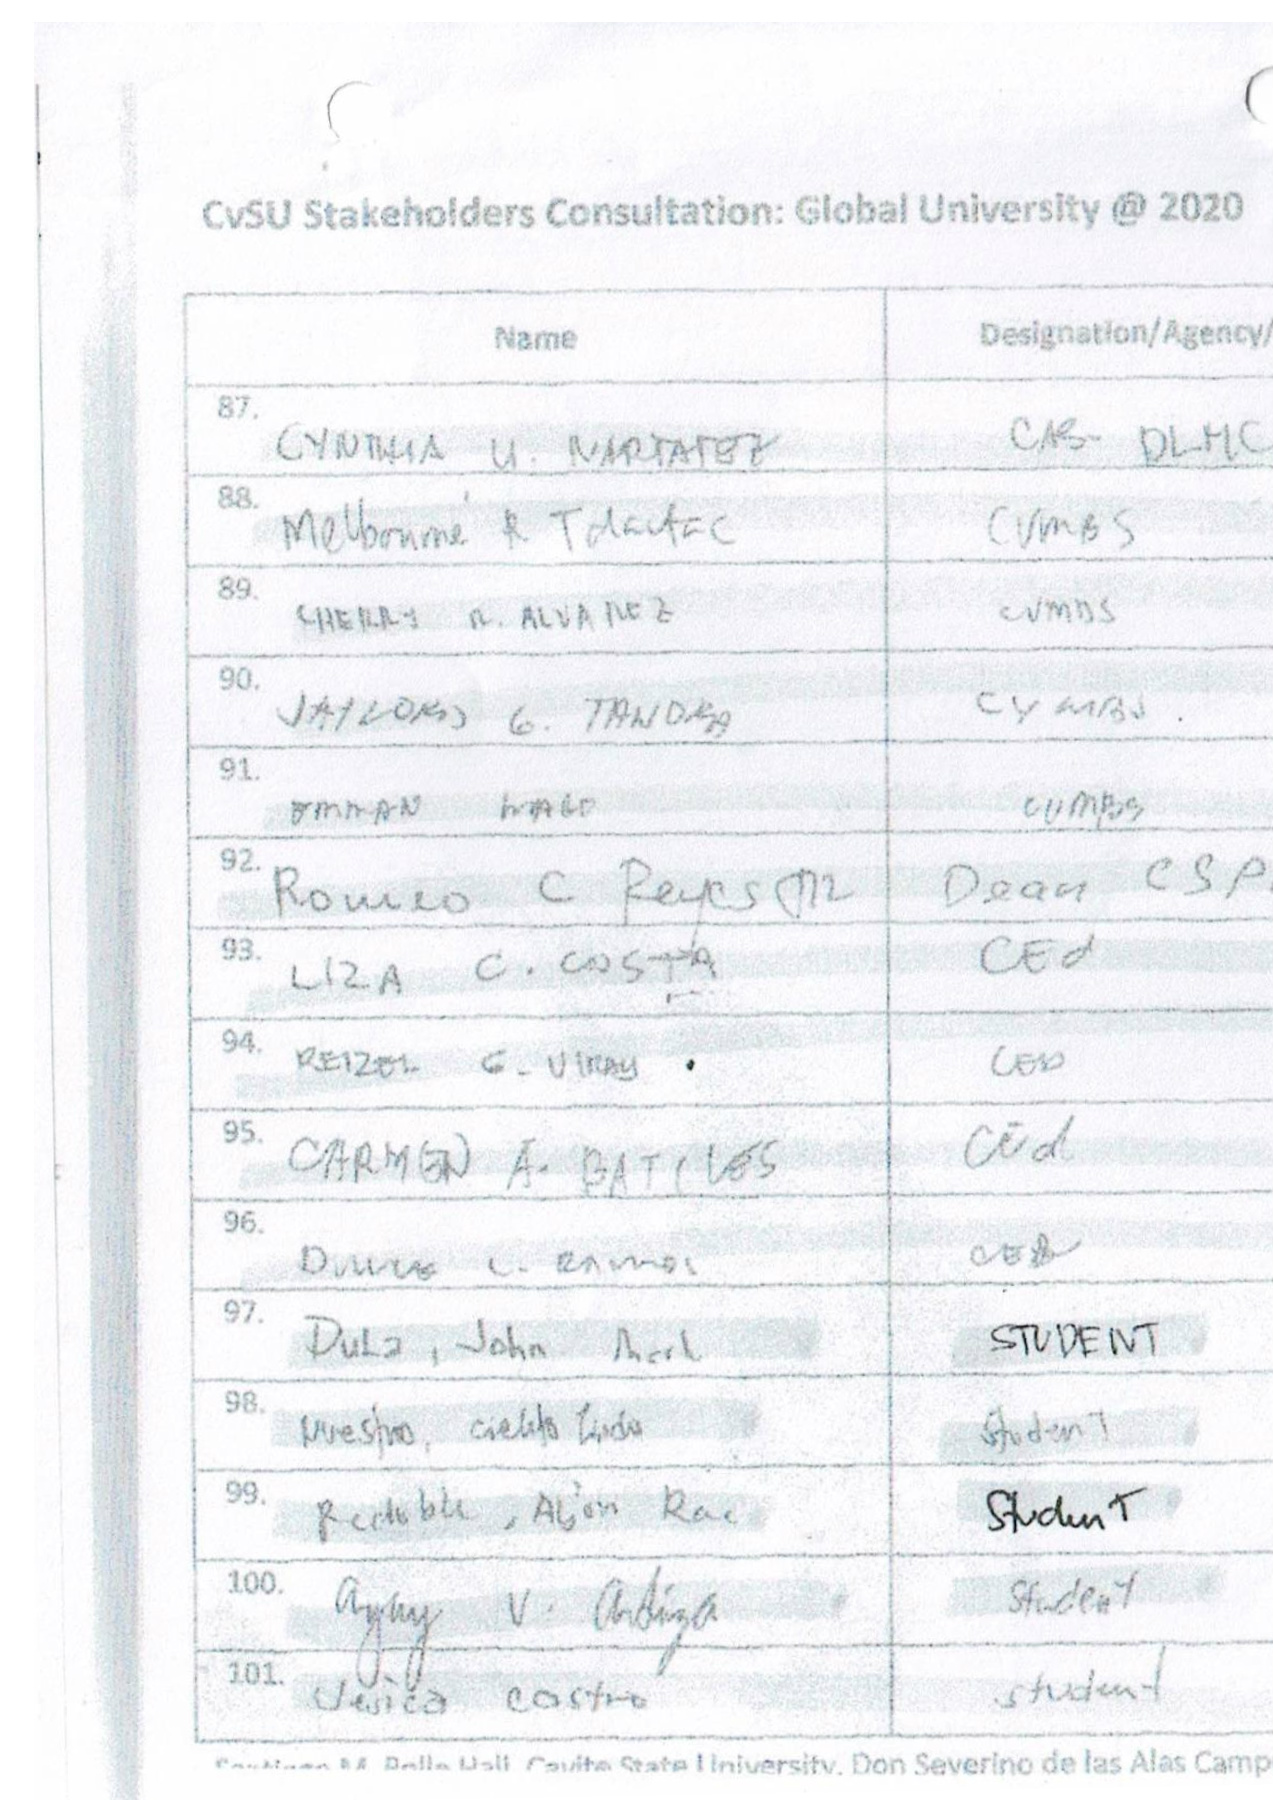 CvSU Stakeholders Consultation: Global University @ 2020
Name Designation/Agency/
87. CYNTHIA U. NARTATEZ CAS- DLMC
88. Melbourne R Talactac CVMBS
89. CHERRY R. ALVAREZ CVMBS
90. G. TANDRA CVMBS.
91. CVMBS
92. Romeo C Reyes Dean
93. LIZA C. COSTA CEd
94. REIZEL G. VIRAY CED
95. CARMEN A. BATILES CEd
96. DULCE L. RAMOS CED
97. Dula, John Mark STUDENT
98. Nuestro, Cielito Lindo Student
99. Redoble, Rae Student
100. V. Student
101. Jesica Castro student
Hall, Cavite State University, Don Severino de las Alas Camp